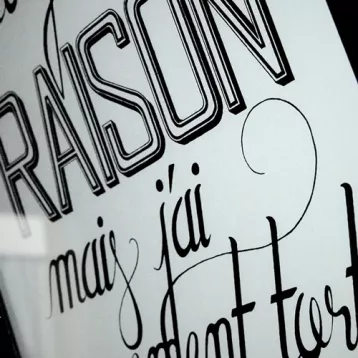 RAISON
mais j'ai
ment tort